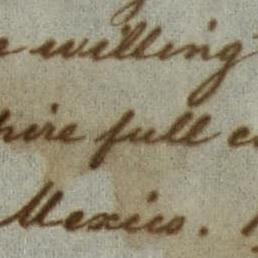 e willing
hire full c
Mexico.